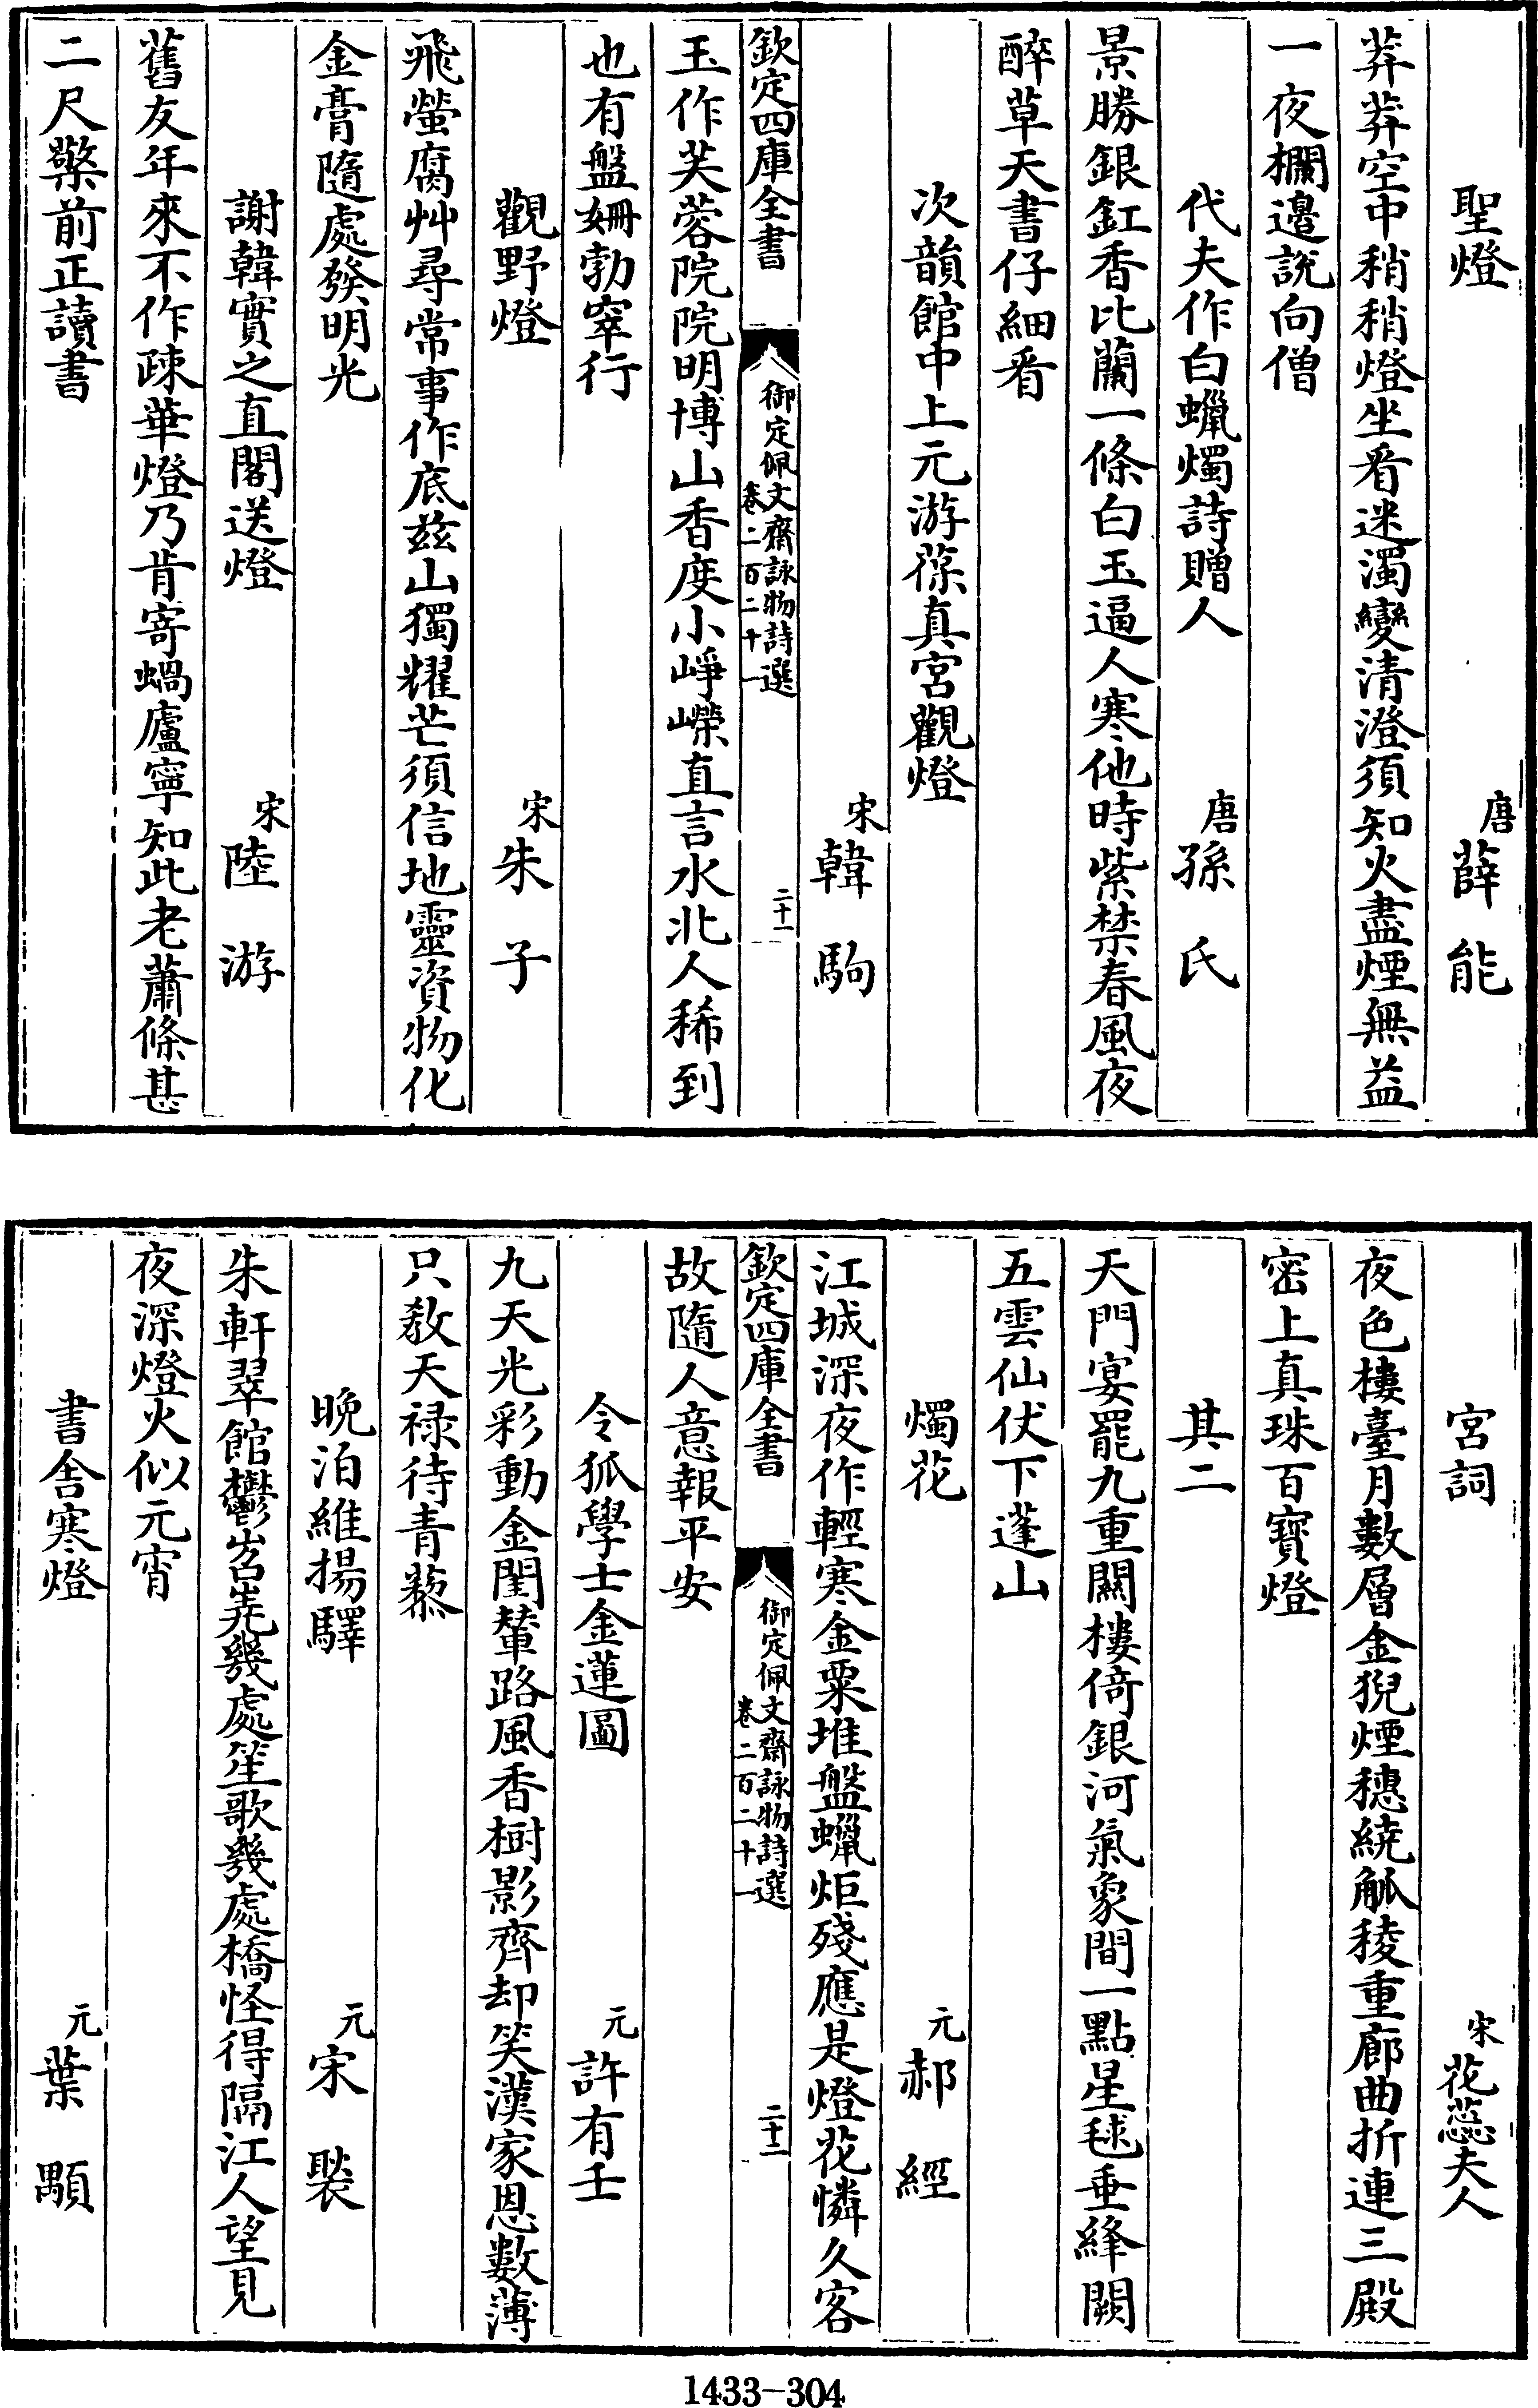 聖燈　唐薛能
莽莽空中稍稍燈坐看迷濁變清澄須知火盡煙無益
一夜欄邊說向僧
代夫作白蠟燭詩贈人　唐孫氏
景勝銀釭香比蘭一條白玉逼人寒他時紫禁春風夜
醉草天書仔細看
次韻館中上元游葆真宮觀燈
宋韓駒
欽定四庫全書　御定佩文齋詠物詩選卷二百二十一　二十一
玉作芙蓉院院明博山香度小崢嶸直言水北人稀到
也有盤姍勃窣行
觀野燈　宋朱子
飛螢腐艸尋常事作底兹山獨耀芒須信地靈資物化
金膏隨處發明光
謝韓實之直閣送燈　宋陸游
舊友年來不作疎華燈乃肯寄蝸廬寧知此老蕭條甚
二尺檠前正讀書
宮詞　宋花蕊夫人
夜色樓臺月數層金猊煙穗繞觚稜重廊曲折連三殿
密上真珠百寶燈
其二
天門宴罷九重關樓倚銀河氣象間一點星毬垂絳闕
五雲仙伏下蓬山
燭花　元郝經
江城深夜作輕寒金粟堆盤蠟炬殘應是燈花憐久客
欽定四庫全書　御定佩文齋詠物詩選卷二百二十一　二十二
故隨人意報平安
令狐學士金蓮圖　元許有壬
九天光彩動金閨輦路風香樹影齊却笑漢家恩數薄
只教天禄待青藜
晚泊維揚驛　元宋褧
朱軒翠館鬱岧嶤幾處笙歌幾處橋怪得隔江人望見
夜深燈火似元宵
書舍寒燈　元葉顒
1433-304